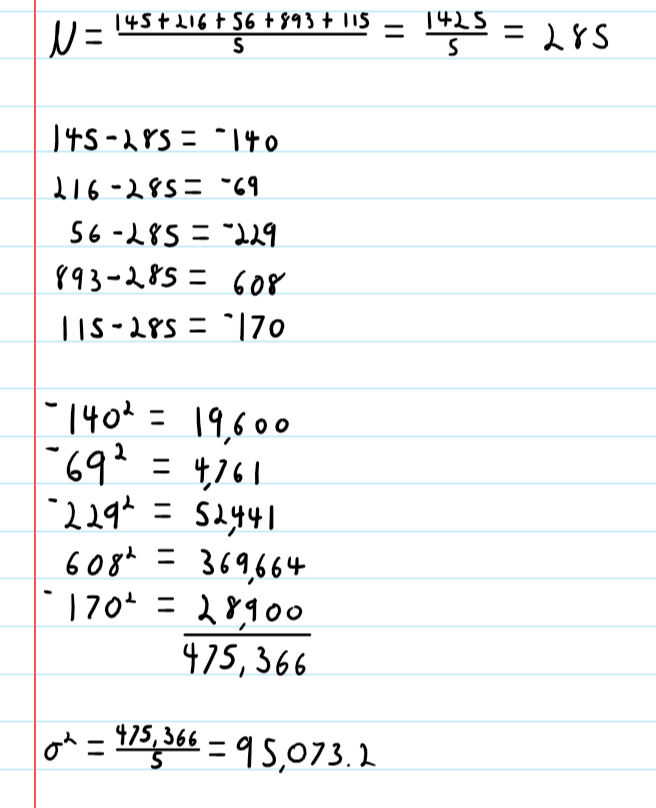 N = 145+216+56+893+115/5 = 1425/5 = 285
145-285 = ⁻140
216-285 = ⁻69
56-285 = ⁻229
893-285 = 608
115-285 = ⁻170
⁻140² = 19,600
⁻69² = 4,761
⁻229² = 52,441
608² = 369,664
⁻170² = 28,900
475,366
σ² = 475,366/5 = 95,073.2